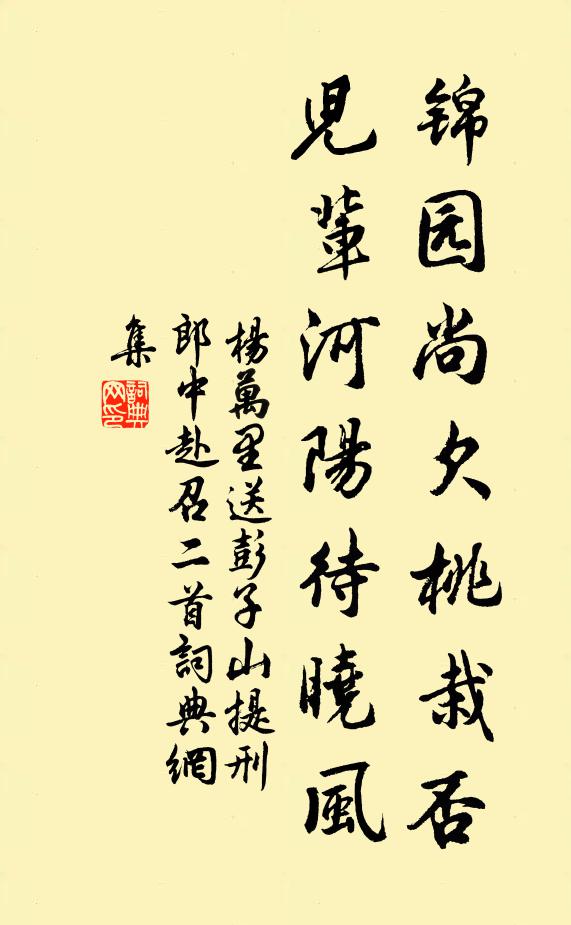 锦园尚欠桃栽否
児輩河陽待曉風
楊萬里送彭子山提刑
郎中赴召二首詞典網
集
詞典
网印